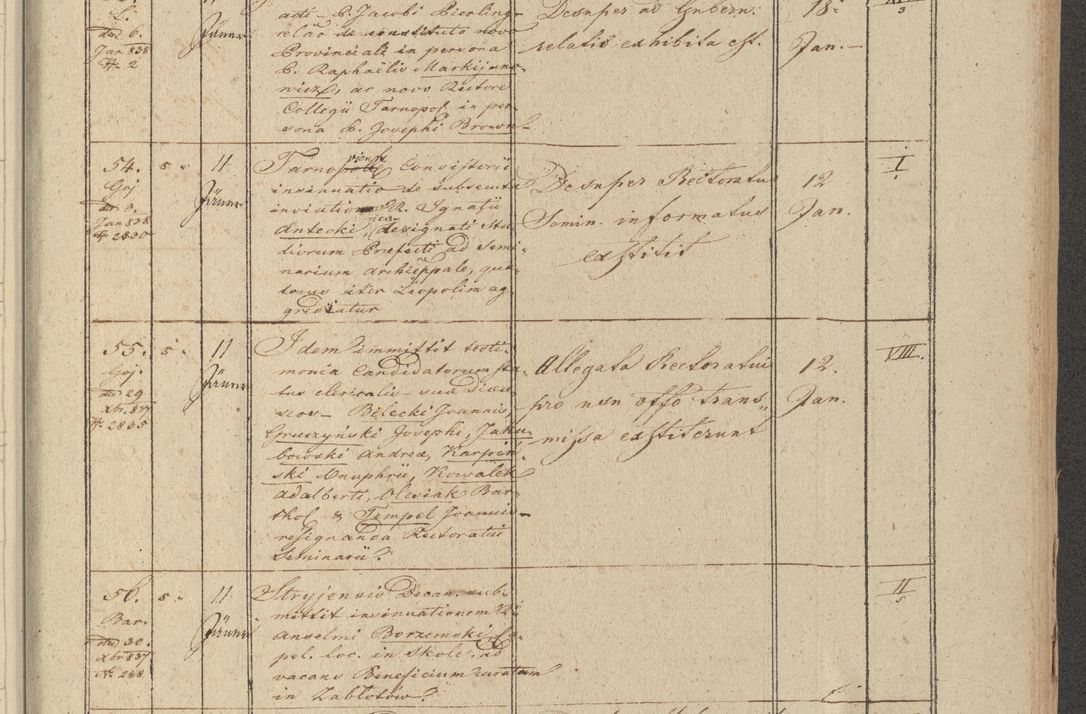 L.
ddo 6.
Jan 838
№ 2
11
Jänner
acti P. Jacobi Pierling
relatio de constituto novo
Provinciali in persona
P. Raphaëlis Markijano-
wicz, ac novo Rectore
Collegii Tarnopol. in per-
sona P. Josephi Brown
Desuper ad Gubern:
relatio exhibita est.
18
Jan.
54.
Goj
ddo 3.
Jan 838
№ 2830
5
11
Jänner
Tarnopoliense Consistorii
insinuatio de subsecuta
inviatione R. Ignatii
Antecki, designati Stu-
diorum Praefecti ad Semi-
narium archieppale, qua-
tenus iter Leopolim ag-
grediatur
Desuper Rectoratus
Semin. informatus
exstitit
12
Jan.
I
55.
Goj.
ddo 29
Xbr. 837
№ 2835
5
11
Jänner
Idem immittit testi-
monia Candidatorum sta-
tus clericalis suae Dioe-
seos Bilecki Joannis,
Gruszyński Josephi, Jaku-
bowski Andreae, Karpiń-
ski Onuphrii, Kowalek
Adalberti, Olesiak Bar-
thol & Tempel Joannis
resignanda Rectoratui
Seminarii?
Allegata Rectoratui
pro usu offo trans-
missa exstiterunt
12.
Jan.
VIII.
56.
Bar.
ddo 30.
Xbr 837
№ 248
5
11
Jänner
Stryjensis Decan. sub-
mittit insinuationem
Anselmi Borzemski Ca-
pel. loc. in Skole, ad
vacans Beneficium curatum
in Zabłotów?
II
5